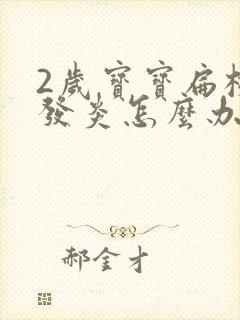 2歲寶寶扁桃
發炎怎麼办
郝金才